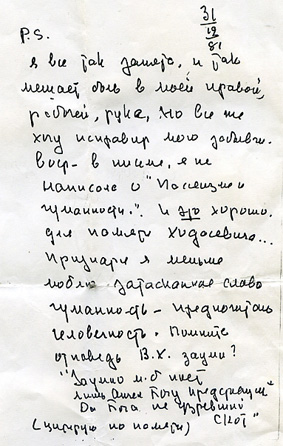 31
12
81
P.S.
я все так занята, и так
мешает боль в моей правой,
рабочей, руке, Но все же
хочу исправить мою забывчи-
вость - в письме, я не
написала о "Пассеизме и
гуманности". И это хорошо
для памяти Ходасевича...
Признаюсь я меньше
люблю затасканное слово
гуманность - предпочитаю
человечность. Помните
отповедь В.Х. зауми?
"Заумно м.б. поет
лишь Ангел Богу предстоящий
Да Бога не узревший
скот"
(цитирую по памяти)